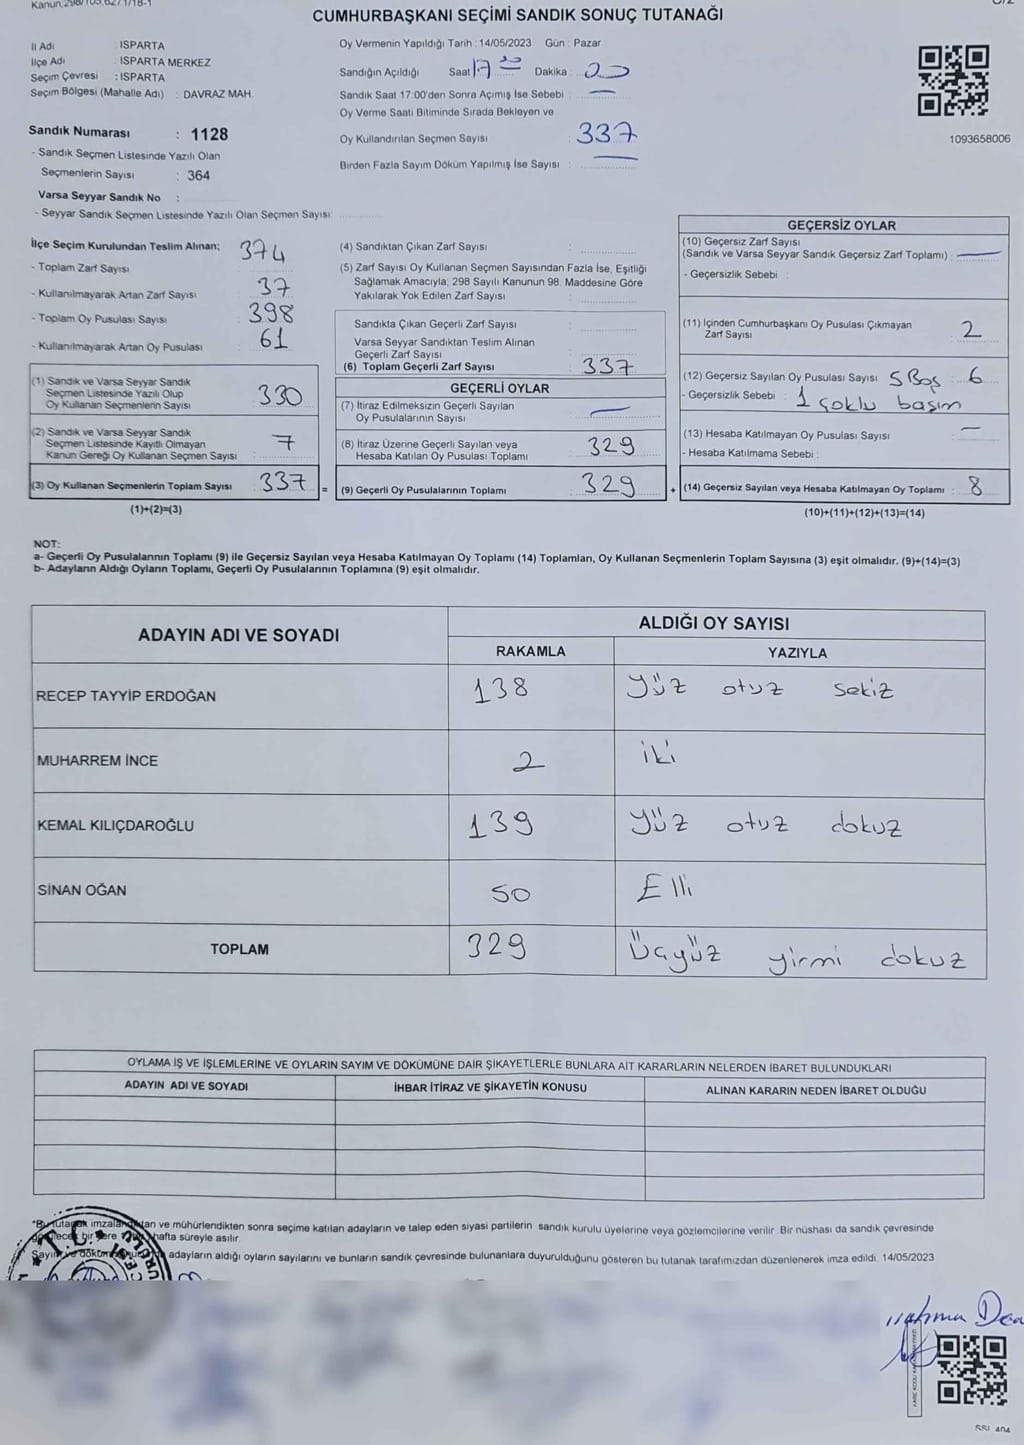 Kanun,298/105,6271/18-1
CUMHURBAŞKANI SEÇİMİ SANDIK SONUÇ TUTANAĞI
İl Adı : ISPARTA
İlçe Adı : ISPARTA MERKEZ
Seçim Çevresi : ISPARTA
Seçim Bölgesi (Mahalle Adı) : DAVRAZ MAH.
Sandık Numarası : 1128
- Sandık Seçmen Listesinde Yazılı Olan
Seçmenlerin Sayısı : 364
Varsa Seyyar Sandık No :
- Seyyar Sandık Seçmen Listesinde Yazılı Olan Seçmen Sayısı:
Oy Vermenin Yapıldığı Tarih : 14/05/2023 Gün : Pazar
Sandığın Açıldığı Saat 17 00 Dakika : 00
Sandık Saat 17:00'den Sonra Açımış İse Sebebi : —
Oy Verme Saati Bitiminde Sırada Bekleyen ve
Oy Kullandırılan Seçmen Sayısı : 337
Birden Fazla Sayım Döküm Yapılmış İse Sayısı : —
1093658006
İlçe Seçim Kurulundan Teslim Alınan;
- Toplam Zarf Sayısı : 374
- Kullanılmayarak Artan Zarf Sayısı : 37
- Toplam Oy Pusulası Sayısı : 398
- Kullanılmayarak Artan Oy Pusulası : 61
(1) Sandık ve Varsa Seyyar Sandık
Seçmen Listesinde Yazılı Olup
Oy Kullanan Seçmenlerin Sayısı : 330
(2) Sandık ve Varsa Seyyar Sandık
Seçmen Listesinde Kayıtlı Olmayan
Kanun Gereği Oy Kullanan Seçmen Sayısı : 7
(3) Oy Kullanan Seçmenlerin Toplam Sayısı : 337 =
(1)+(2)=(3)
(4) Sandıktan Çıkan Zarf Sayısı :
(5) Zarf Sayısı Oy Kullanan Seçmen Sayısından Fazla İse, Eşitliği
Sağlamak Amacıyla; 298 Sayılı Kanunun 98. Maddesine Göre
Yakılarak Yok Edilen Zarf Sayısı :
Sandıkta Çıkan Geçerli Zarf Sayısı :
Varsa Seyyar Sandıktan Teslim Alınan
Geçerli Zarf Sayısı :
(6) Toplam Geçerli Zarf Sayısı : 337
GEÇERLİ OYLAR
(7) İtiraz Edilmeksizin Geçerli Sayılan
Oy Pusulalarının Sayısı : —
(8) İtiraz Üzerine Geçerli Sayılan veya
Hesaba Katılan Oy Pusulası Toplamı : 329
(9) Geçerli Oy Pusulalarının Toplamı : 329 +
GEÇERSİZ OYLAR
(10) Geçersiz Zarf Sayısı
(Sandık ve Varsa Seyyar Sandık Geçersiz Zarf Toplamı) : —
- Geçersizlik Sebebi :
(11) İçinden Cumhurbaşkanı Oy Pusulası Çıkmayan
Zarf Sayısı : 2
(12) Geçersiz Sayılan Oy Pusulası Sayısı 5 Boş : 6
- Geçersizlik Sebebi : 1 çoklu basım
(13) Hesaba Katılmayan Oy Pusulası Sayısı : —
- Hesaba Katılmama Sebebi :
(14) Geçersiz Sayılan veya Hesaba Katılmayan Oy Toplamı : 8
(10)+(11)+(12)+(13)=(14)
NOT:
a- Geçerli Oy Pusulalarının Toplamı (9) ile Geçersiz Sayılan veya Hesaba Katılmayan Oy Toplamı (14) Toplamları, Oy Kullanan Seçmenlerin Toplam Sayısına (3) eşit olmalıdır. (9)+(14)=(3)
b- Adayların Aldığı Oyların Toplamı, Geçerli Oy Pusulalarının Toplamına (9) eşit olmalıdır.
ADAYIN ADI VE SOYADI ALDIĞI OY SAYISI
RAKAMLA YAZIYLA
RECEP TAYYİP ERDOĞAN 138 Yüz otuz sekiz
MUHARREM İNCE 2 iki
KEMAL KILIÇDAROĞLU 139 Yüz otuz dokuz
SİNAN OĞAN 50 Elli
TOPLAM 329 Üçyüz yirmi dokuz
OYLAMA İŞ VE İŞLEMLERİNE VE OYLARIN SAYIM VE DÖKÜMÜNE DAİR ŞİKAYETLERLE BUNLARA AİT KARARLARIN NELERDEN İBARET BULUNDUKLARI
ADAYIN ADI VE SOYADI İHBAR İTİRAZ VE ŞİKAYETİN KONUSU ALINAN KARARIN NEDEN İBARET OLDUĞU
imzalandıktan ve mühürlendikten sonra seçime katılan adayların ve talep eden siyasi partilerin sandık kurulu üyelerine veya gözlemcilerine verilir. Bir nüshası da sandık çevresinde
hafta süreyle asılır.
adayların aldığı oyların sayılarını ve bunların sandık çevresinde bulunanlara duyurulduğunu gösteren bu tutanak tarafımızdan düzenlenerek imza edildi. 14/05/2023
T.C.